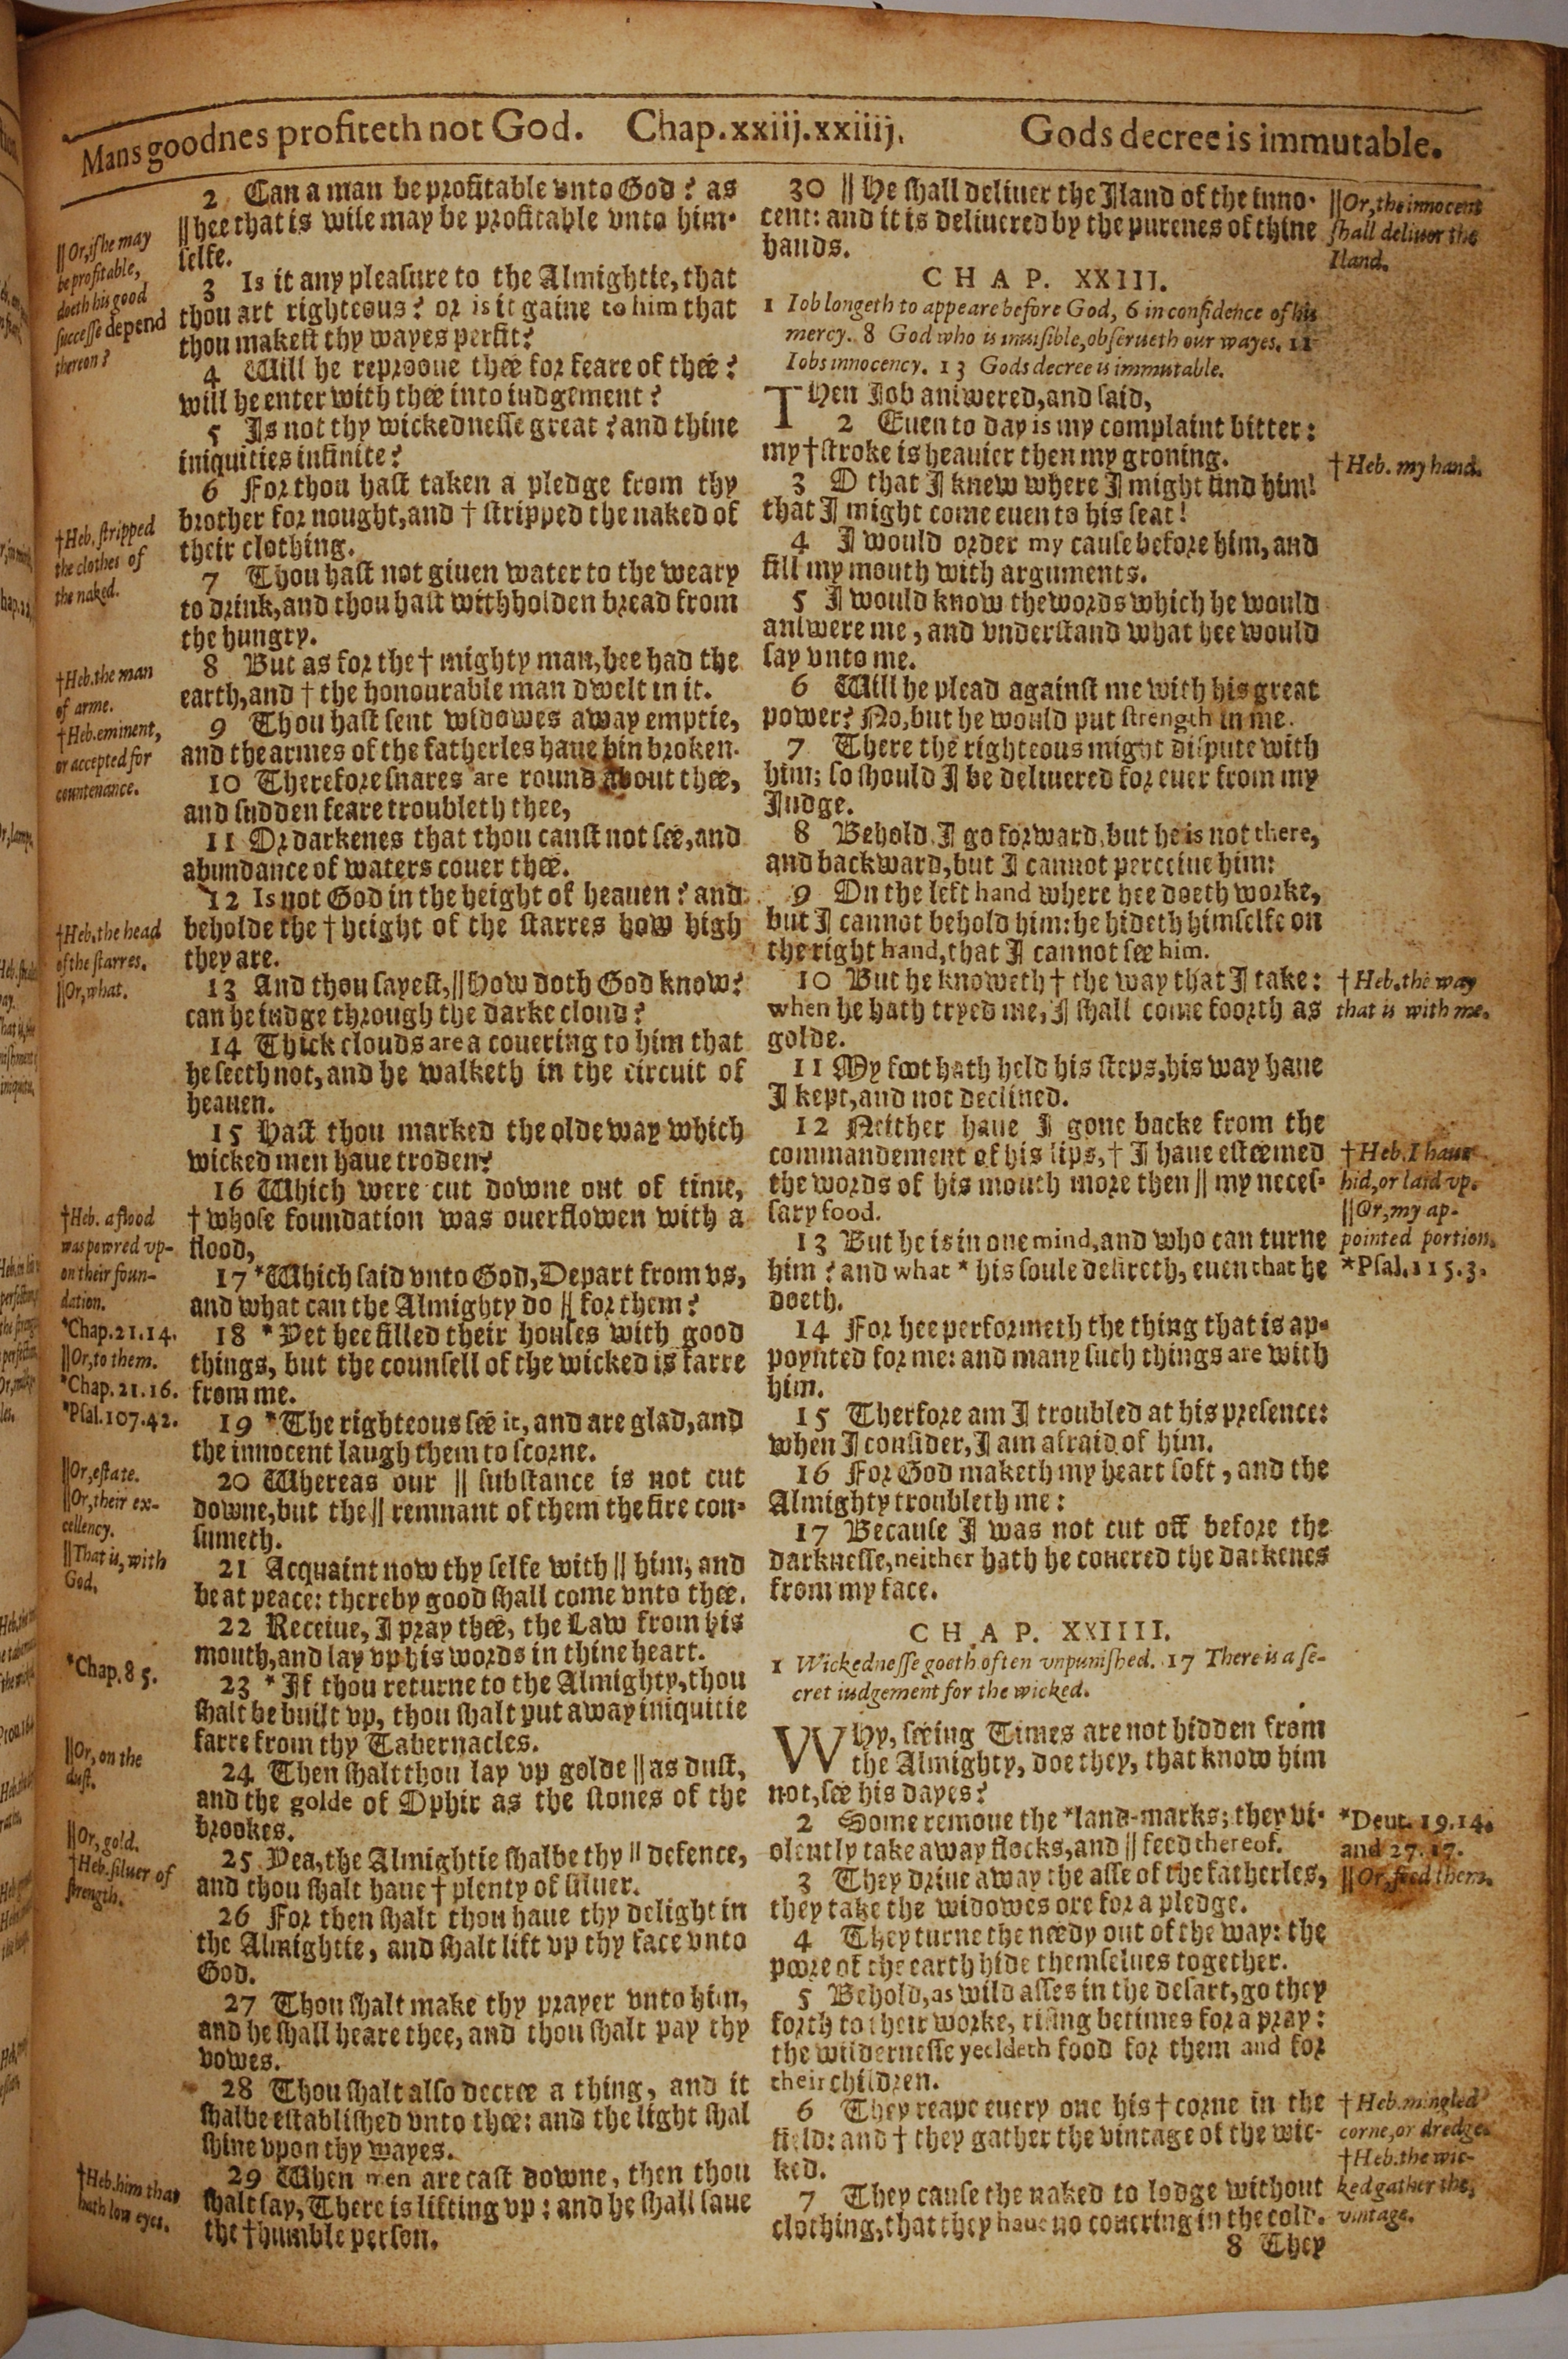 Mans goodnes profiteth not God. Chap.xxiij.xxiiij. Gods decree is immutable.
2 Can a man be profitable vnto God? as
||hee that is wise may be profitable vnto him-
selfe.
3 Is it any pleasure to the Almightie, that
thou art righteous? or is it gaine to him that
thou makest thy wayes perfit?
4 Will he reprooue thee for feare of thee?
will he enter with thee into iudgement?
5 Is not thy wickednesse great? and thine
iniquities infinite?
6 For thou hast taken a pledge from thy
brother for nought, and † stripped the naked of
their clothing.
7 Thou hast not giuen water to the weary
to drink, and thou hast withholden bread from
the hungry.
8 But as for the † mighty man, hee had the
earth, and † the honourable man dwelt in it.
9 Thou hast sent widowes away emptie,
and the armes of the fatherles haue bin broken.
10 Therefore snares are round about thee,
and sudden feare troubleth thee,
11 Or darkenes that thou canst not see, and
abundance of waters couer thee.
12 Is not God in the height of heauen? and
beholde the † height of the starres how high
they are.
13 And thou sayest, || How doth God know?
can he iudge through the darke cloud?
14 Thick clouds are a couering to him that
he seeth not, and he walketh in the circuit of
heauen.
15 Hast thou marked the olde way which
wicked men haue troden?
16 Which were cut downe out of time,
† whose foundation was ouerflowen with a
flood,
17 *Which said vnto God, Depart from vs,
and what can the Almighty do || for them?
18 *Yet hee filled their houses with good
things, but the counsell of the wicked is farre
from me.
19 *The righteous see it, and are glad, and
the innocent laugh them to scorne.
20 Whereas our || substance is not cut
downe, but the || remnant of them the fire con-
sumeth.
21 Acquaint now thy selfe with || him, and
be at peace: thereby good shall come vnto thee.
22 Receiue, I pray thee, the Law from his
mouth, and lay vp his words in thine heart.
23 * If thou returne to the Almighty, thou
shalt be built vp, thou shalt put away iniquitie
farre from thy Tabernacles.
24 Then shalt thou lay vp golde || as dust,
and the golde of Ophir as the stones of the
brookes.
25 Yea, the Almightie shalbe thy || defence,
and thou shalt haue † plenty of siluer.
26 For then shalt thou haue thy delight in
the Almightie, and shalt lift vp thy face vnto
God.
27 Thou shalt make thy prayer vnto him,
and he shall heare thee, and thou shalt pay thy
vowes.
28 Thou shalt also decree a thing, and it
shalbe established vnto thee: and the light shal
shine vpon thy wayes.
29 When men are cast downe, then thou
shalt say, There is lifting vp: and he shall saue
the † humble person.
||Or, if he may
be profitable,
doeth his good
successe depend
thereon?
†Heb. stripped
the clothes of
the naked.
†Heb. the man
of arme.
†Heb. eminent,
or accepted for
countenance.
†Heb. the head
of the starres.
||Or, what.
†Heb. a flood
was powred vp-
on their foun-
dation.
*Chap. 21.14.
||Or, to them.
*Chap. 21.16.
*Psal. 107.42.
||Or, estate.
||Or, their ex-
cellency.
||That is, with
God.
*Chap. 8 5.
||Or, on the
dust.
||Or, gold.
†Heb. siluer of
strength.
†Heb. him that
hath low eyes.
30 || He shall deliuer the Iland of the inno-
cent: and it is deliuered by the purenes of thine
hands.
CHAP. XXIII.
1 Iob longeth to appeare before God, 6 in confidence of his
mercy. 8 God who is inuisible, obserueth our wayes. 11
Iobs innocency. 13 Gods decree is immutable.
Then Iob answered, and said,
2 Euen to day is my complaint bitter:
my † stroke is heauier then my groning.
3 O that I knew where I might find him!
that I might come euen to his seat!
4 I would order my cause before him, and
fill my mouth with arguments.
5 I would know the words which he would
answere me, and vnderstand what hee would
say vnto me.
6 Will he plead against me with his great
power? No, but he would put strength in me.
7 There the righteous might dispute with
him; so should I be deliuered for euer from my
Iudge.
8 Behold, I go forward, but he is not there,
and backward, but I cannot perceiue him:
9 On the left hand where hee doeth worke,
but I cannot behold him: he hideth himselfe on
the right hand, that I cannot see him.
10 But he knoweth † the way that I take:
when he hath tryed me, I shall come foorth as
golde.
11 My foot hath held his steps, his way haue
I kept, and not declined.
12 Neither haue I gone backe from the
commandement of his lips, † I haue esteemed
the words of his mouth more then || my neces-
sary food.
13 But he is in one mind, and who can turne
him? and what * his soule desireth, euen that he
doeth.
14 For hee performeth the thing that is ap-
poynted for me: and many such things are with
him.
15 Therfore am I troubled at his presence:
when I consider, I am afraid of him.
16 For God maketh my heart soft, and the
Almighty troubleth me:
17 Because I was not cut off before the
darknesse, neither hath he couered the darkenes
from my face.
CHAP. XXIIII.
1 Wickednesse goeth often vnpunished. 17 There is a se-
cret iudgement for the wicked.
Why, seeing Times are not hidden from
the Almighty, doe they, that know him
not, see his dayes?
2 Some remoue the *land-marks; they vi-
olently take away flocks, and || feed thereof.
3 They driue away the asse of the fatherles,
they take the widowes oxe for a pledge.
4 They turne the needy out of the way: the
poore of the earth hide themselues together.
5 Behold, as wild asses in the desart, go they
forth to their worke, rising betimes for a pray:
the wildernesse yeeldeth food for them and for
their children.
6 They reape euery one his † corne in the
field: and † they gather the vintage of the wic-
ked.
7 They cause the naked to lodge without
clothing, that they haue no couering in the cold.
8 They
||Or, the innocent
shall deliuer the
Iland.
†Heb. my hand.
†Heb. the way
that is with me.
†Heb. I haue
hid, or laid vp.
||Or, my ap-
pointed portion.
*Psal. 115.3.
*Deut. 19.14.
and 27.17.
||Or, feed them.
†Heb. mingled
corne, or dredge.
†Heb. the wic-
ked gather the
vintage.